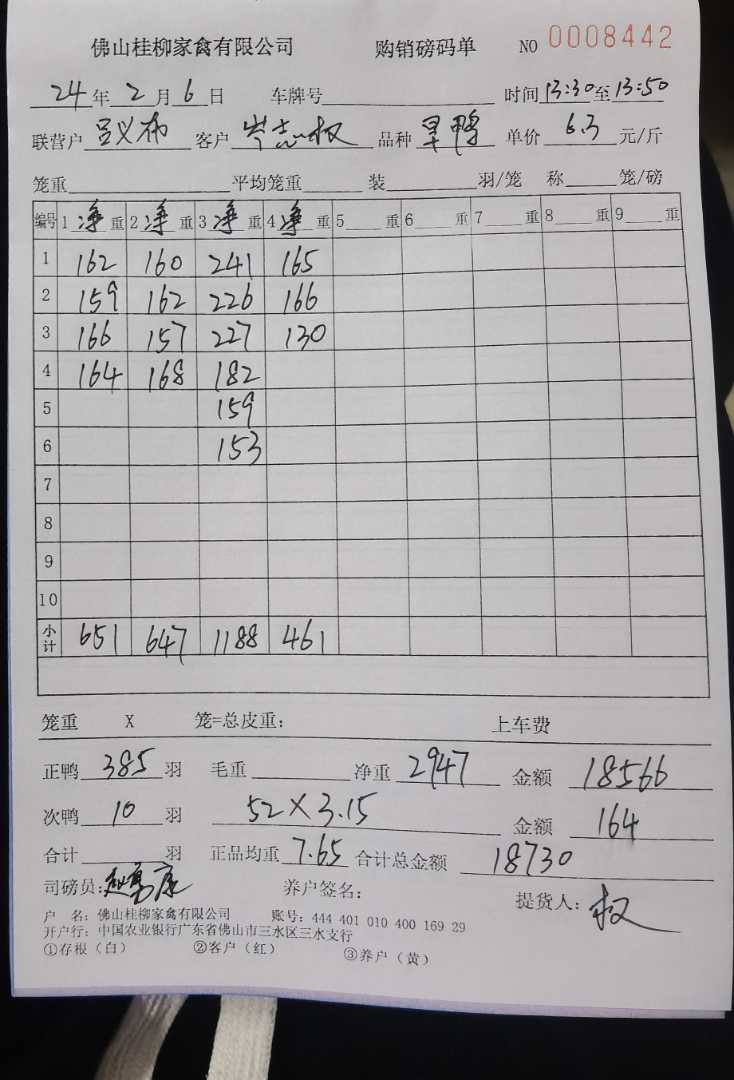 佛山桂柳家禽有限公司 购销磅码单 NO 0008442
24年2月6日 车牌号 时间13:30至13:50
联营户 吕义布 客户 岑志权 品种 旱鸭 单价 6.3 元/斤
笼重 平均笼重 装 羽/笼 称 笼/磅
编号 1净重 2净重 3净重 4净重 5 重 6 重 7 重 8 重 9 重
1 162 160 241 165
2 159 162 226 166
3 166 157 227 130
4 164 168 182
5 159
6 153
7
8
9
10
小计 651 647 1188 461
笼重 X 笼=总皮重： 上车费
正鸭 385 羽 毛重 净重 2947 金额 18566
次鸭 10 羽 52×3.15 金额 164
合计 羽 正品均重 7.65 合计总金额 18730
司磅员： 养户签名： 提货人：权
户 名：佛山桂柳家禽有限公司 账号：444 401 010 400 169 29
开户行：中国农业银行广东省佛山市三水区三水支行
①存根（白） ②客户（红） ③养户（黄）